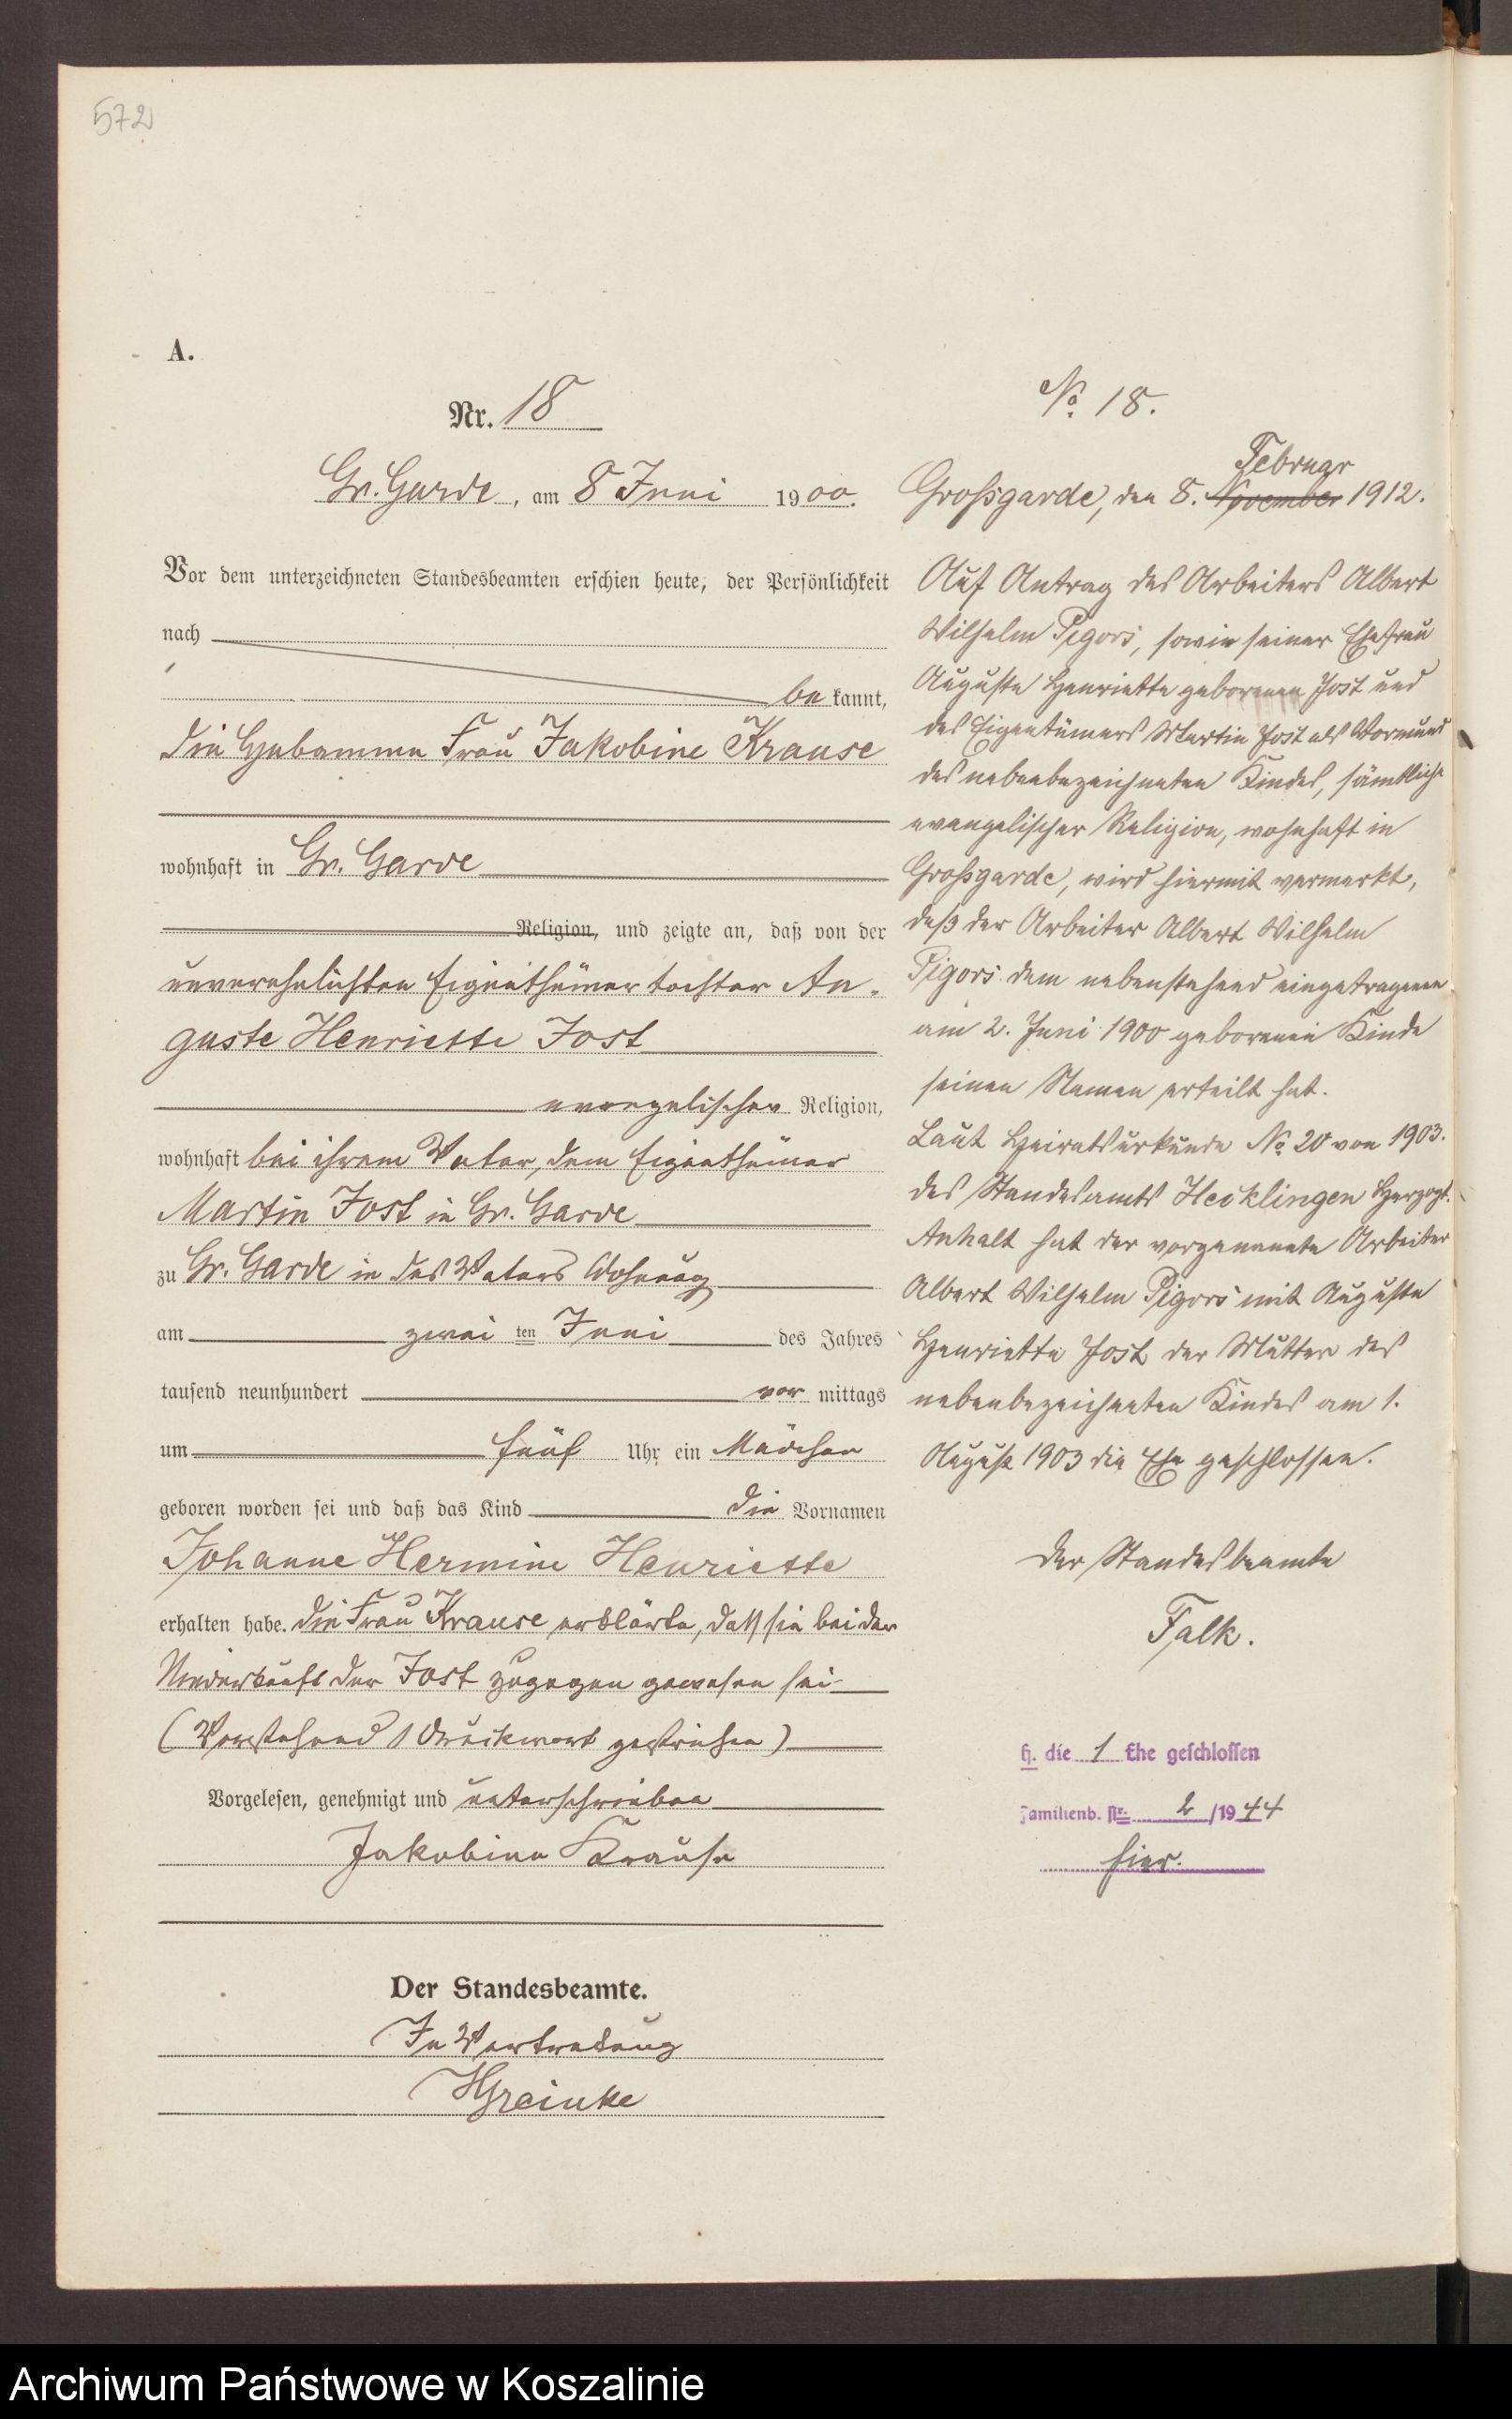 572
A.
Nr. 18
Gr. Garde, am 8 Juni 1900.
Vor dem unterzeichneten Standesbeamten erschien heute, der Persönlichkeit
nach
be kannt,
die Hebamme Frau Jakobine Krause
wohnhaft in Gr. Garde
Religion, und zeigte an, daß von der
unverehelichten Eigenthümertochter Au-
guste Henriette Jost
evangelischer Religion,
wohnhaft bei ihrem Vater, dem Eigenthümer
Martin Jost in Gr. Garde
zu Gr. Garde in des Vaters Wohnung
am zwei ten Juni des Jahres
tausend neunhundert vor mittags
um fünf Uhr ein Mädchen
geboren worden sei und daß das Kind die Vornamen
Johanne Hermine Henriette
erhalten habe. Die Frau Krause erklärte, daß sie bei der
Niederkunft der Jost zugegen gewesen sei
(Vorstehend 1 Druckwort gestrichen)
Vorgelesen, genehmigt und unterschrieben
Jakobine Krause
Der Standesbeamte.
In Vertretung
HGreinke
No. 18.
Februar
Großgarde, den 8. November 1912.
Auf Antrag des Arbeiters Albert
Wilhelm Pigors, sowie seiner Ehefrau
Auguste Henriette geborenen Jost und
des Eigentümers Martin Jost als Vormund
des nebenbezeichneten Kindes, sämtliche
evangelischer Religion, wohnhaft in
Großgarde, wird hiermit vermerkt,
daß der Arbeiter Albert Wilhelm
Pigors dem nebenstehend eingetragenen
am 2. Juni 1900 geborenen Kinde
seinen Namen erteilt hat.
Laut Heiratsurkunde No. 20 von 1903.
des Standesamts Hecklingen Herzogt.
Anhalt hat der vorgenannte Arbeiter
Albert Wilhelm Pigors mit Auguste
Henriette Jost der Mutter des
nebenbezeichneten Kindes am 1.
August 1903 die Ehe geschlossen.
Der Standesbeamte
Falk.
H. die 1 Ehe geschlossen
Familienb. Nr. 2 /1944
hier.
Archiwum Państwowe w Koszalinie